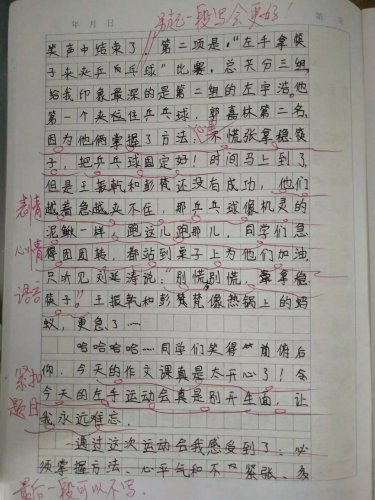 年 月 日
另起一段写会更好！
笑声中结束了，第二项是："左手拿筷
子来夹乒乓球"比赛，总共分三组，
给我印象最深的是第二组的左宇浩他
第一个夹住乒乓球，郭嘉林第二名，
因为他俩掌握了方法：不慌张拿稳筷
子，把乒乓球固定好！时间马上到了，
但是王振帆和彭梵还没有成功，他们
越着急越夹不住，那乒乓球像机灵的
泥鳅一样，跑这儿跑那儿，同学们急
得团团转，都站到桌子上为他们加油，
只听见刘延涛说："别慌别慌，拿拿稳
筷子！王振帆和彭梵像热锅上的蚂
蚁，更急了……
哈哈哈哈……同学们笑得前俯后
仰，今天的作文课真是太开心了！今
今天的左手运动会真是别开生面，让
我永远难忘。
通过这次运动会我感受到了：必
须掌握方法、心平气和不紧张、多
表情
心情
语言
紧扣
题目
最后一段可以不写.